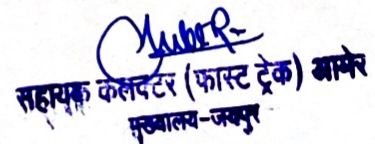 सहायक कलक्टर (फास्ट ट्रेक) आमेर
मुख्यालय-जयपुर